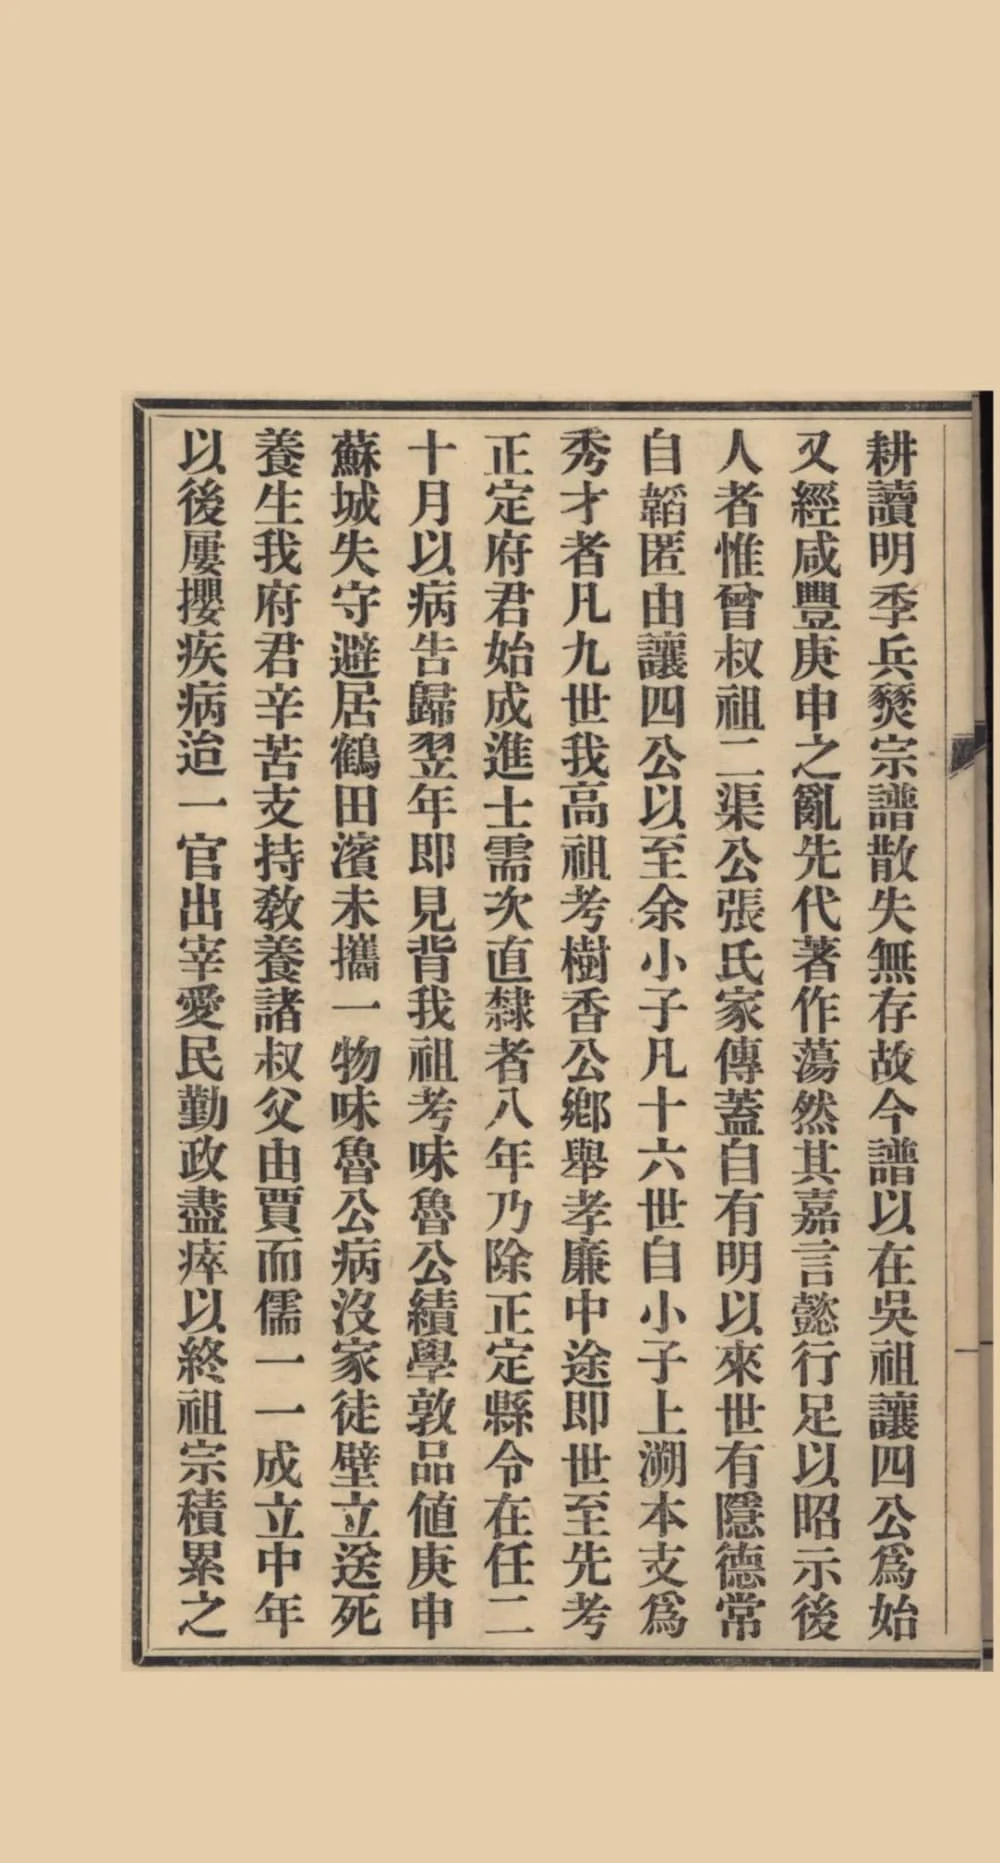 耕讀明季兵燹宗譜散失無存故今譜以在吳祖讓四公爲始
又經咸豐庚申之亂先代著作蕩然其嘉言懿行足以昭示後
人者惟曾叔祖二渠公張氏家傳蓋自有明以來世有隱德常
自韜匿由讓四公以至余小子凡十六世自小子上溯本支爲
秀才者凡九世我高祖考樹香公鄉舉孝廉中途即世至先考
正定府君始成進士需次直隸者八年乃除正定縣令在任二
十月以病告歸翌年即見背我祖考味魯公績學敦品値庚申
蘇城失守避居鶴田濱未攜一物味魯公病沒家徒壁立送死
養生我府君辛苦支持敎養諸叔父由賈而儒一一成立中年
以後屢攖疾病迨一官出宰愛民勤政盡瘁以終祖宗積累之